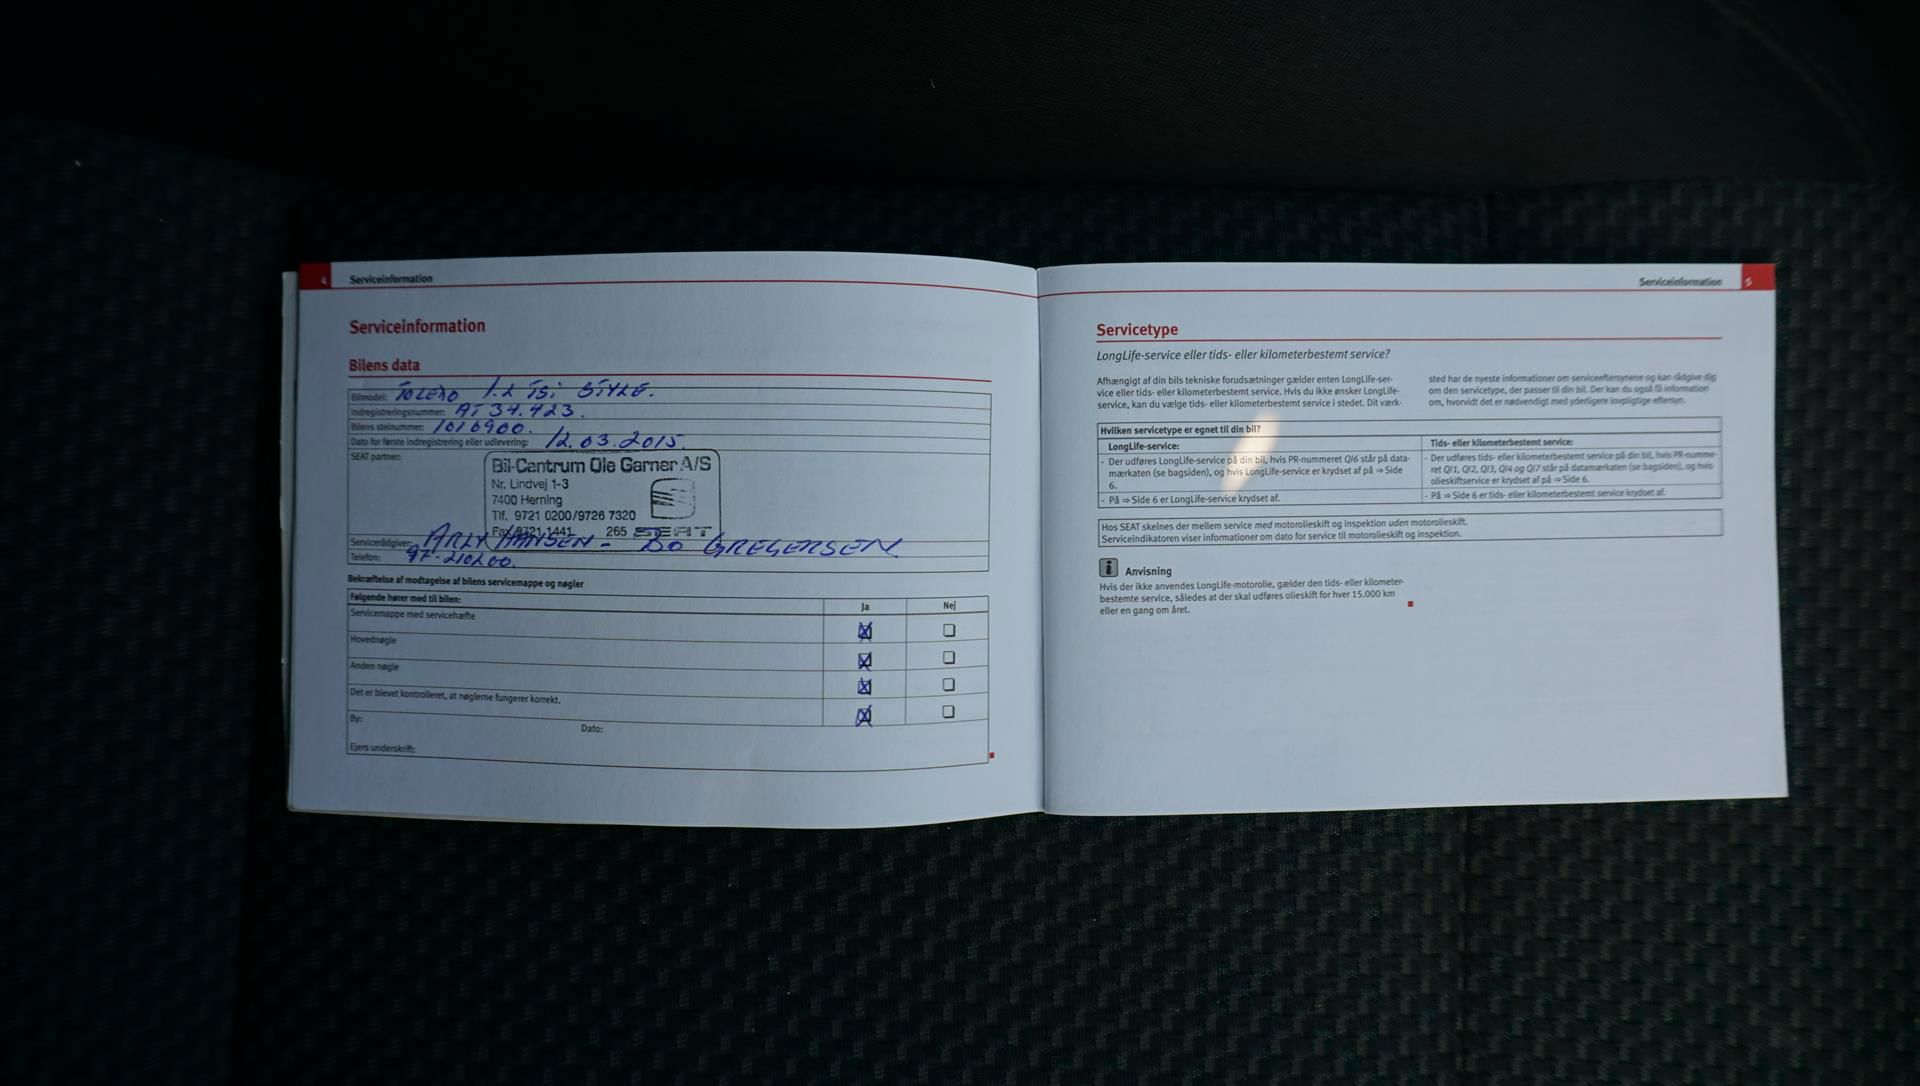 4 Serviceinformation
Serviceinformation
Bilens data
Bilmodel: TOLEDO 1.2 TSi STYLE.
Indregistreringsnummer: AT 34.423.
Bilens stelnummer: 1010900.
Dato for første indregistrering eller udlevering: 12.03.2015.
SEAT partner:
Bil-Centrum Ole Garner A/S
Nr. Lindvej 1-3
7400 Herning
Tlf. 9721 0200/9726 7320
Fax 9721 1441 265 SEAT
Servicerådgiver: ARLY HANSEN - BO GREGERSEN
Telefon: 97-210200.
Bekræftelse af modtagelse af bilens servicemappe og nøgler
Følgende hører med til bilen: Ja Nej
Servicemappe med servicehæfte
Hovednøgle
Anden nøgle
Det er blevet kontrolleret, at nøglerne fungerer korrekt.
By: Dato:
Ejers underskrift:
Serviceinformation 5
Servicetype
LongLife-service eller tids- eller kilometerbestemt service?
Afhængigt af din bils tekniske forudsætninger gælder enten LongLife-ser-
vice eller tids- eller kilometerbestemt service. Hvis du ikke ønsker LongLife-
service, kan du vælge tids- eller kilometerbestemt service i stedet. Dit værk-
sted har de nyeste informationer om serviceeftersynene og kan rådgive dig
om den servicetype, der passer til din bil. Der kan du også få information
om, hvorvidt det er nødvendigt med yderligere lovpligtige eftersyn.
Hvilken servicetype er egnet til din bil?
LongLife-service:
- Der udføres LongLife-service på din bil, hvis PR-nummeret QI6 står på data-
mærkaten (se bagsiden), og hvis LongLife-service er krydset af på ⇒ Side
6.
- På ⇒ Side 6 er LongLife-service krydset af.
Tids- eller kilometerbestemt service:
- Der udføres tids- eller kilometerbestemt service på din bil, hvis PR-numme-
ret QI1, QI2, QI3, QI4 og QI7 står på datamærkaten (se bagsiden), og hvis
olieskiftservice er krydset af på ⇒ Side 6.
- På ⇒ Side 6 er tids- eller kilometerbestemt service krydset af.
Hos SEAT skelnes der mellem service med motorolieskift og inspektion uden motorolieskift.
Serviceindikatoren viser informationer om dato for service til motorolieskift og inspektion.
i Anvisning
Hvis der ikke anvendes LongLife-motorolie, gælder den tids- eller kilometer-
bestemte service, således at der skal udføres olieskift for hver 15.000 km
eller en gang om året.